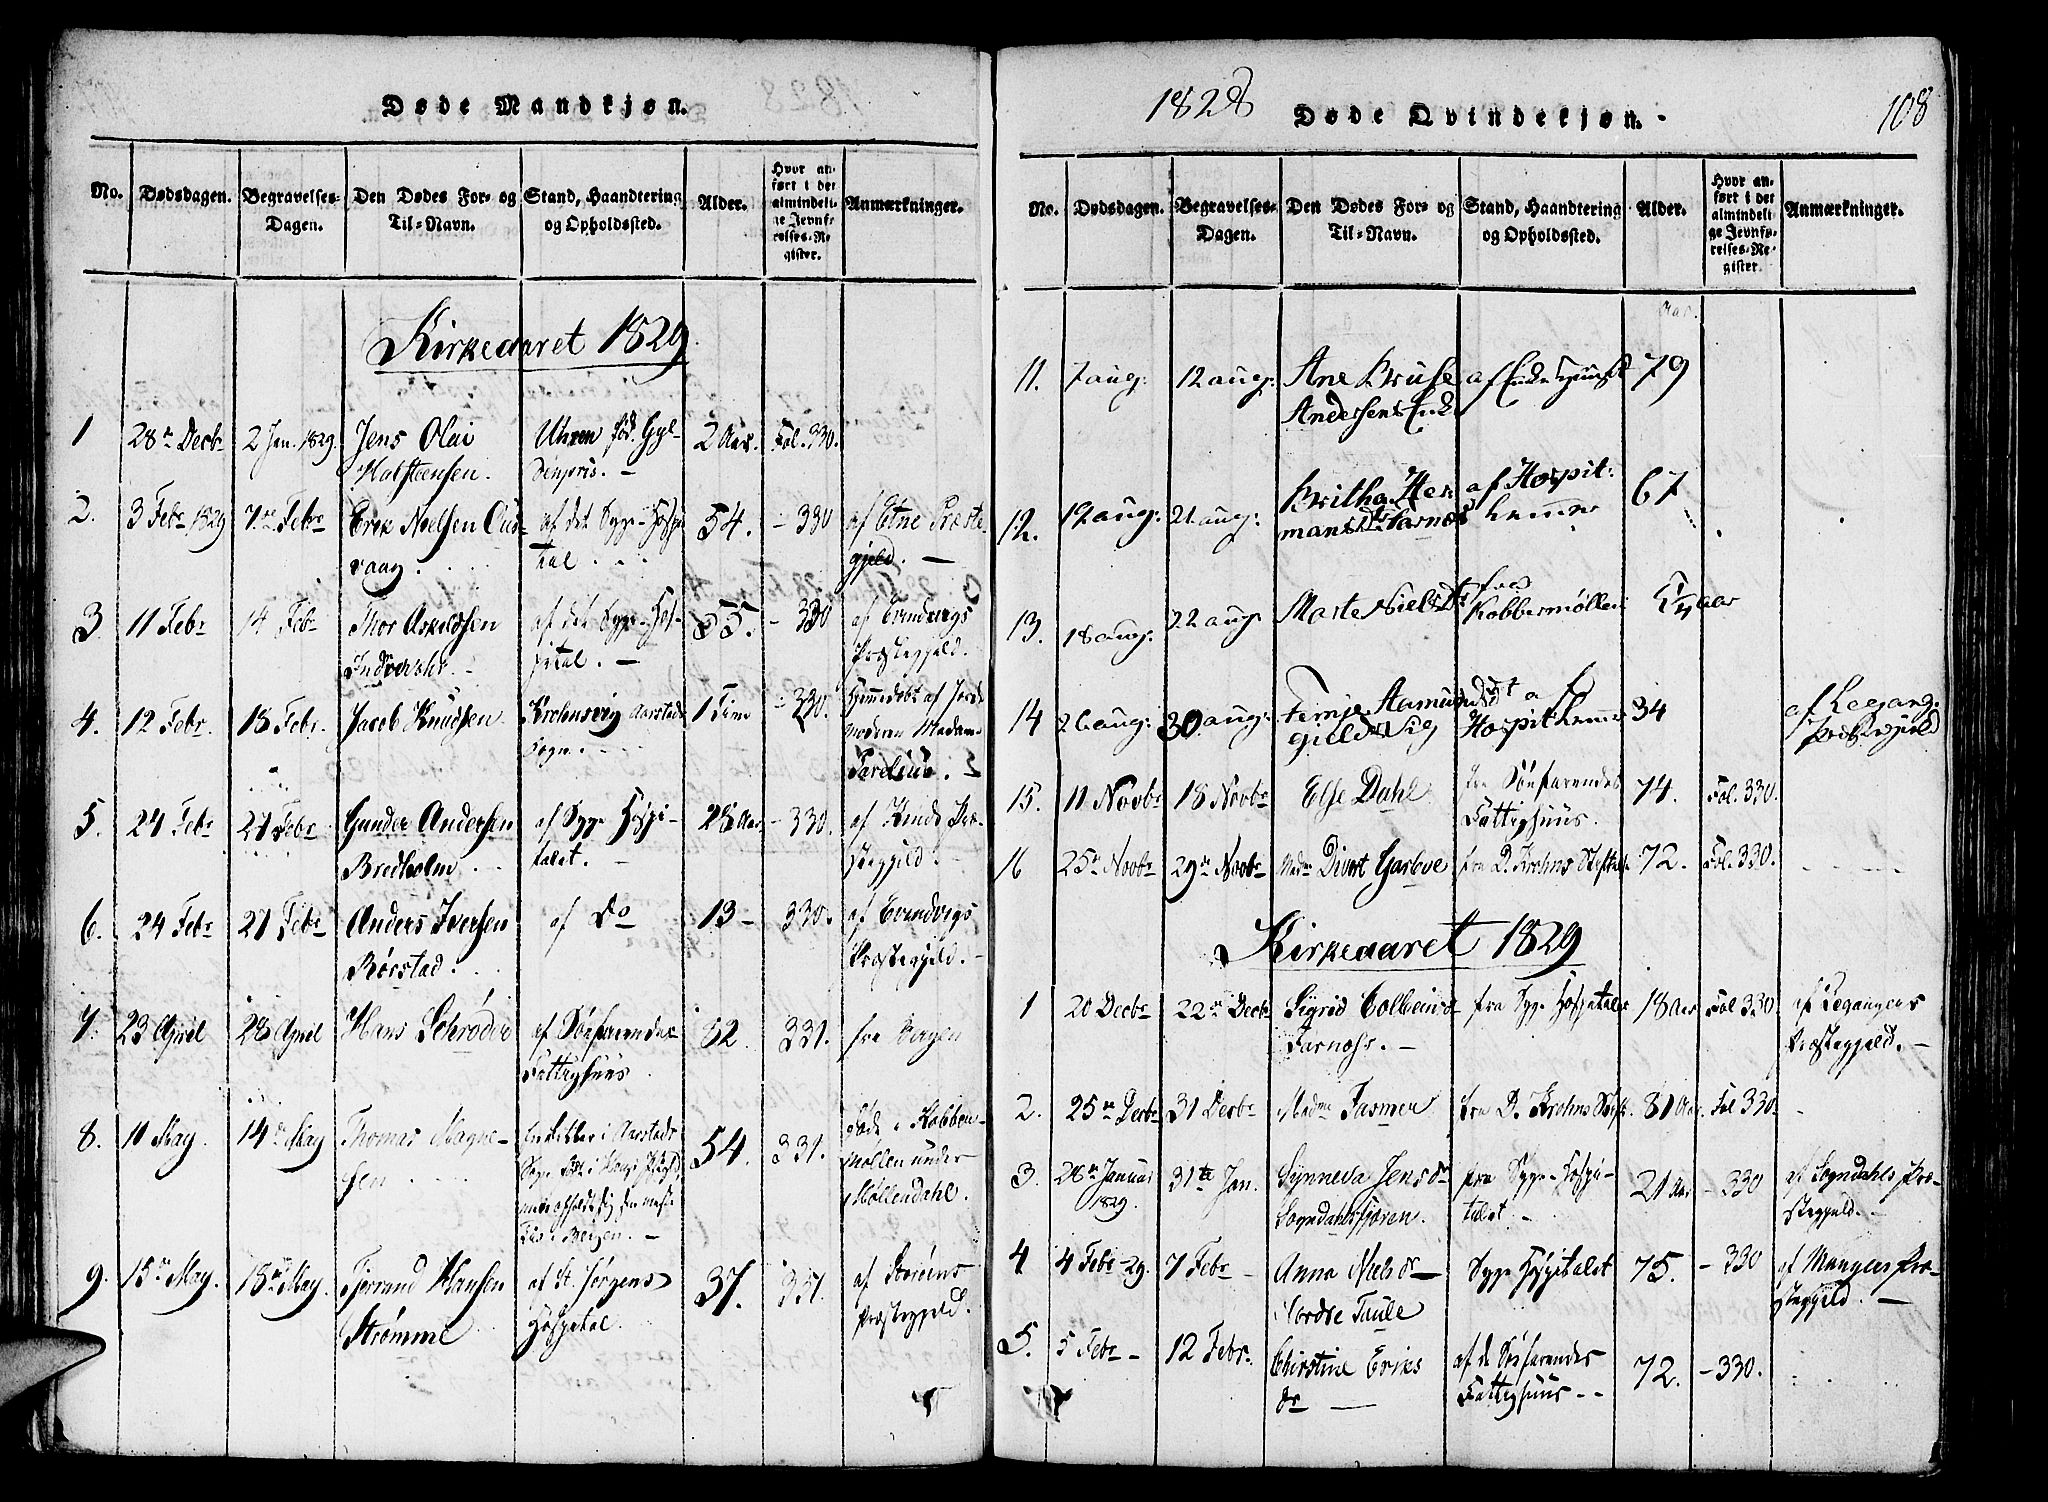 Døde Mandkjøn.
No.
Dødsdagen.
Begravelses-
Dagen.
Den Dødes For- og
Til-Navn.
Stand, Haandtering
og Opholdssted.
Alder.
Hvor an-
ført i det
almindeli-
ge Jevnfø-
relses-Re-
gister.
Anmærkninger.
Kirkeaaret 1829
1
28de Decbr
2 Jan. 1829.
Jens Olai
Halsteensen.
Uhren fød. Gyl-
denpris. -
2 Aar.
Fol. 330.
2.
3 Febr 1829
7de Febr
Erik Noelsen Qud-
vaag . . .
af det Syge-Hospi-
tal . . .
54.
- 330
af Etne Præste-
gjeld. -
3.
11 Febr
14 Febr
Thor Askeldsen
af det Syge-Hos-
pital. -
55.
- 330
af Evindvigs
Præstegjeld.
4.
12 Febr.
18 Febr.
Jacob Knudsen
Krohnsvig Aarstads
Sogn. . . .
1 Time
- 330.
Hjemmedøbt af Jorde
moderen Madam
5.
24 Febr
27 Febr
Gunder Andersen
Bredholm . .
af Syge Hospi-
talet. -
28 Aar
- 330.
af Kinds Præ-
stegjeld. -
6.
24 Febr
27 Febr
Anders Iversen
Rørstad. . .
af Do
13 -
330.
af Evindvigs
Præstegjeld. -
7.
23 April
28 April
Hans Schrøder
af Søefarendes
Fattighuus
82.
331.
fra Bergen
8.
11 May.
14de May
Thomas Magne-
sen . . .
54.
331.
døde i Kobber-
Møllen under
Møllendahl.
9.
15de May.
18de May.
Tjerand Hansen
Strømme
af St. Jørgens
Hospital.
37.
331.
af Storøens
Præstegjeld.
1828
Døde Qvindekjøn.
108
No.
Dødsdagen.
Begravelses-
Dagen.
Den Dødes For- og
Til-Navn.
Stand, Haandtering
og Opholdssted.
Alder.
Hvor an-
ført i det
almindeli-
ge Jevnfø-
relses-Re-
gister.
Anmærkninger.
Aar.
11.
7 aug:
12 aug:
Ane Kruse
Andersens Enke
af Enke Huuset
79
12.
17 aug:
21 aug:
Britha Her
mansDr Farnæs
af Hospit:
lemmer
67
13.
18 aug:
22 aug
Marte NielsDr
fra
Kobbermøllen
14
26 aug:
30 aug:
Hospit: lemmer
34
af Legang:
Præstegjeld
15.
11 Novbr
18 Novbr
Else Dahl
fra Søefarendes
Fattighuus.
74.
Fol. 330.
16
25de Novbr
29de Novbr
Madm Divert Garboe
fra D. Krohns Stiftelse
72.
Fol. 330.
Kirkeaaret 1829
1
20 Decbr
22de Decbr
Sigrid Colbeinsdr
Farnæss. -
fra Syge Hospitalet
18 Aar
Fol 330
af Legangers
Præstegjeld. -
2.
25de Decbr
31 Decbr
Madm Fasmer
fra D. Krohns Stift.
81 Aar.
Fol 330.
3.
26de Januar
1829.
31te Jan.
Synneva Jensdr
Sogndalsfjøren.
fra Syge-Hospi-
talet -
21 Aar
- 330
af Sogndahls Præ-
stegjeld. -
4
4 Febr -29.
7 Febr -
Anna Nielsdr -
Nordre Taule
Syge Hospitalet
75.
- 330
af Mangers Præ-
stegjeld. -
5.
5 Febr -
12 Febr.
Christine Eriks
dr -
af de Søefarendes
Fattighuus - -
72.
- 330.